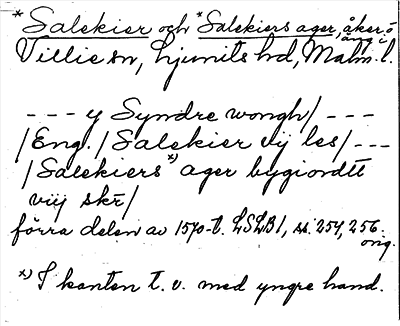 *Salekier och *Salekiers ager, åker o. äng i
Villie sn, Ljunits hd, Malm. l.
--- y Syndre wongh/ ---
/Eng./ Salekier vij les/ ---
/Salekiers x) ager bygiordtt
viij skr/
förra delen av 1570-t. LSLB1, ss. 254, 256.
orig.
x) I kanten t. v. med yngre hand.